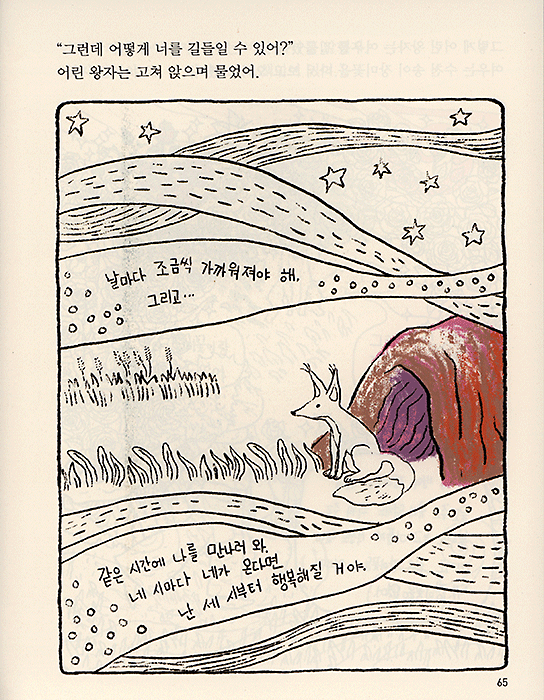 “그런데 어떻게 너를 길들일 수 있어?”
어린 왕자는 고쳐 앉으며 물었어.
날마다 조금씩 가까워져야 해.
그리고...
같은 시간에 나를 만나러 와.
네 시마다 네가 온다면
난 세 시부터 행복해질 거야.
65